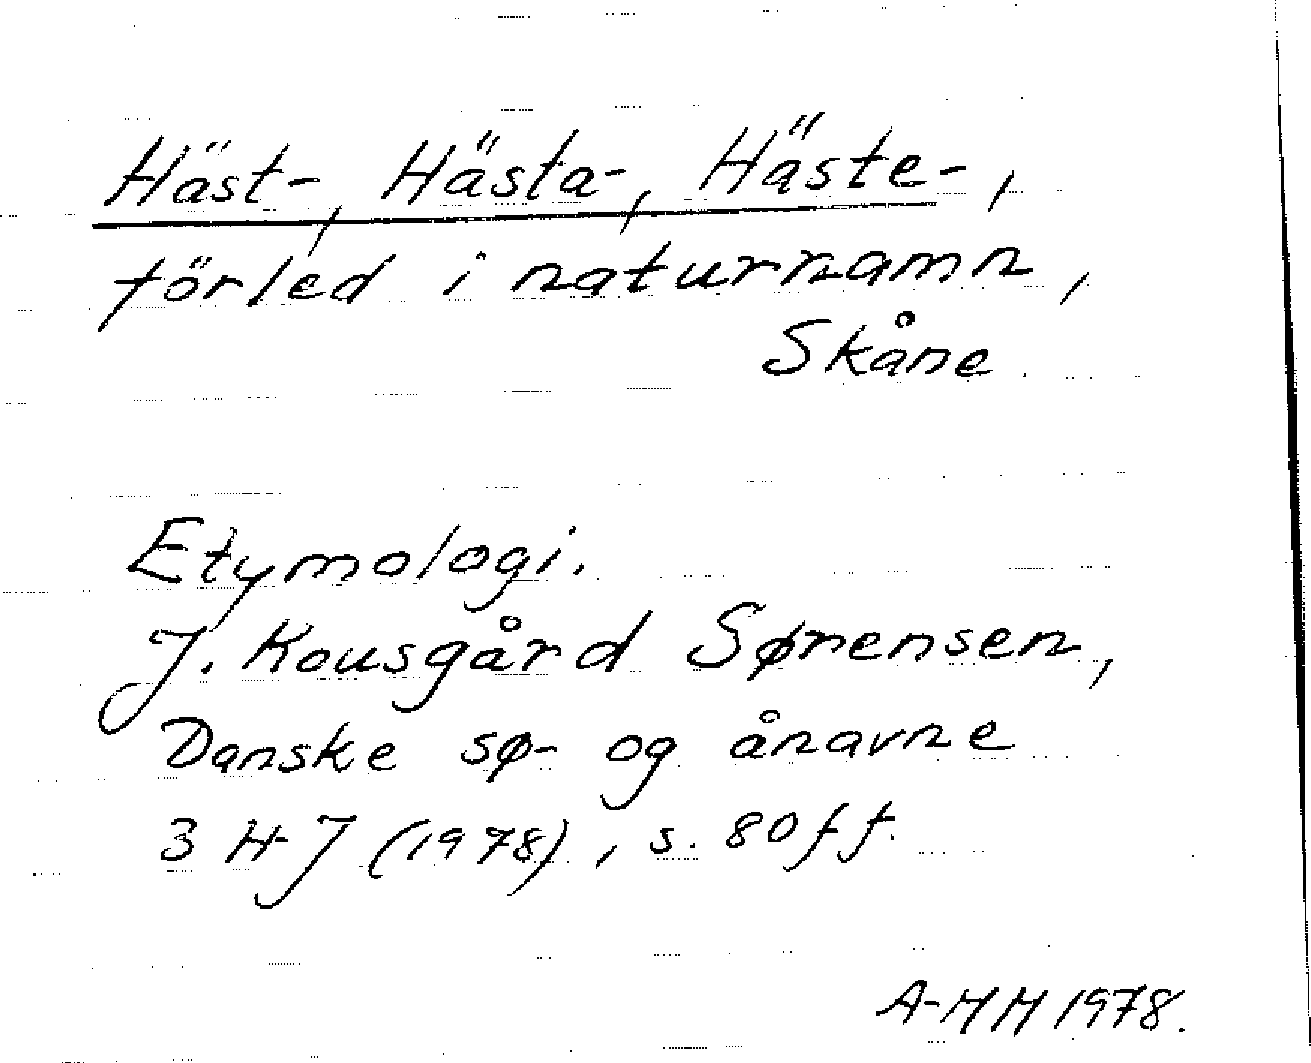 Häst-, Hästa-, Häste-,
förled i naturnamn,
Skåne.
Etymologi.
J. Kousgård Sørensen,
Danske sø- og ånavne
3 H-J (1978), s. 80ff.
A-MH 1978.